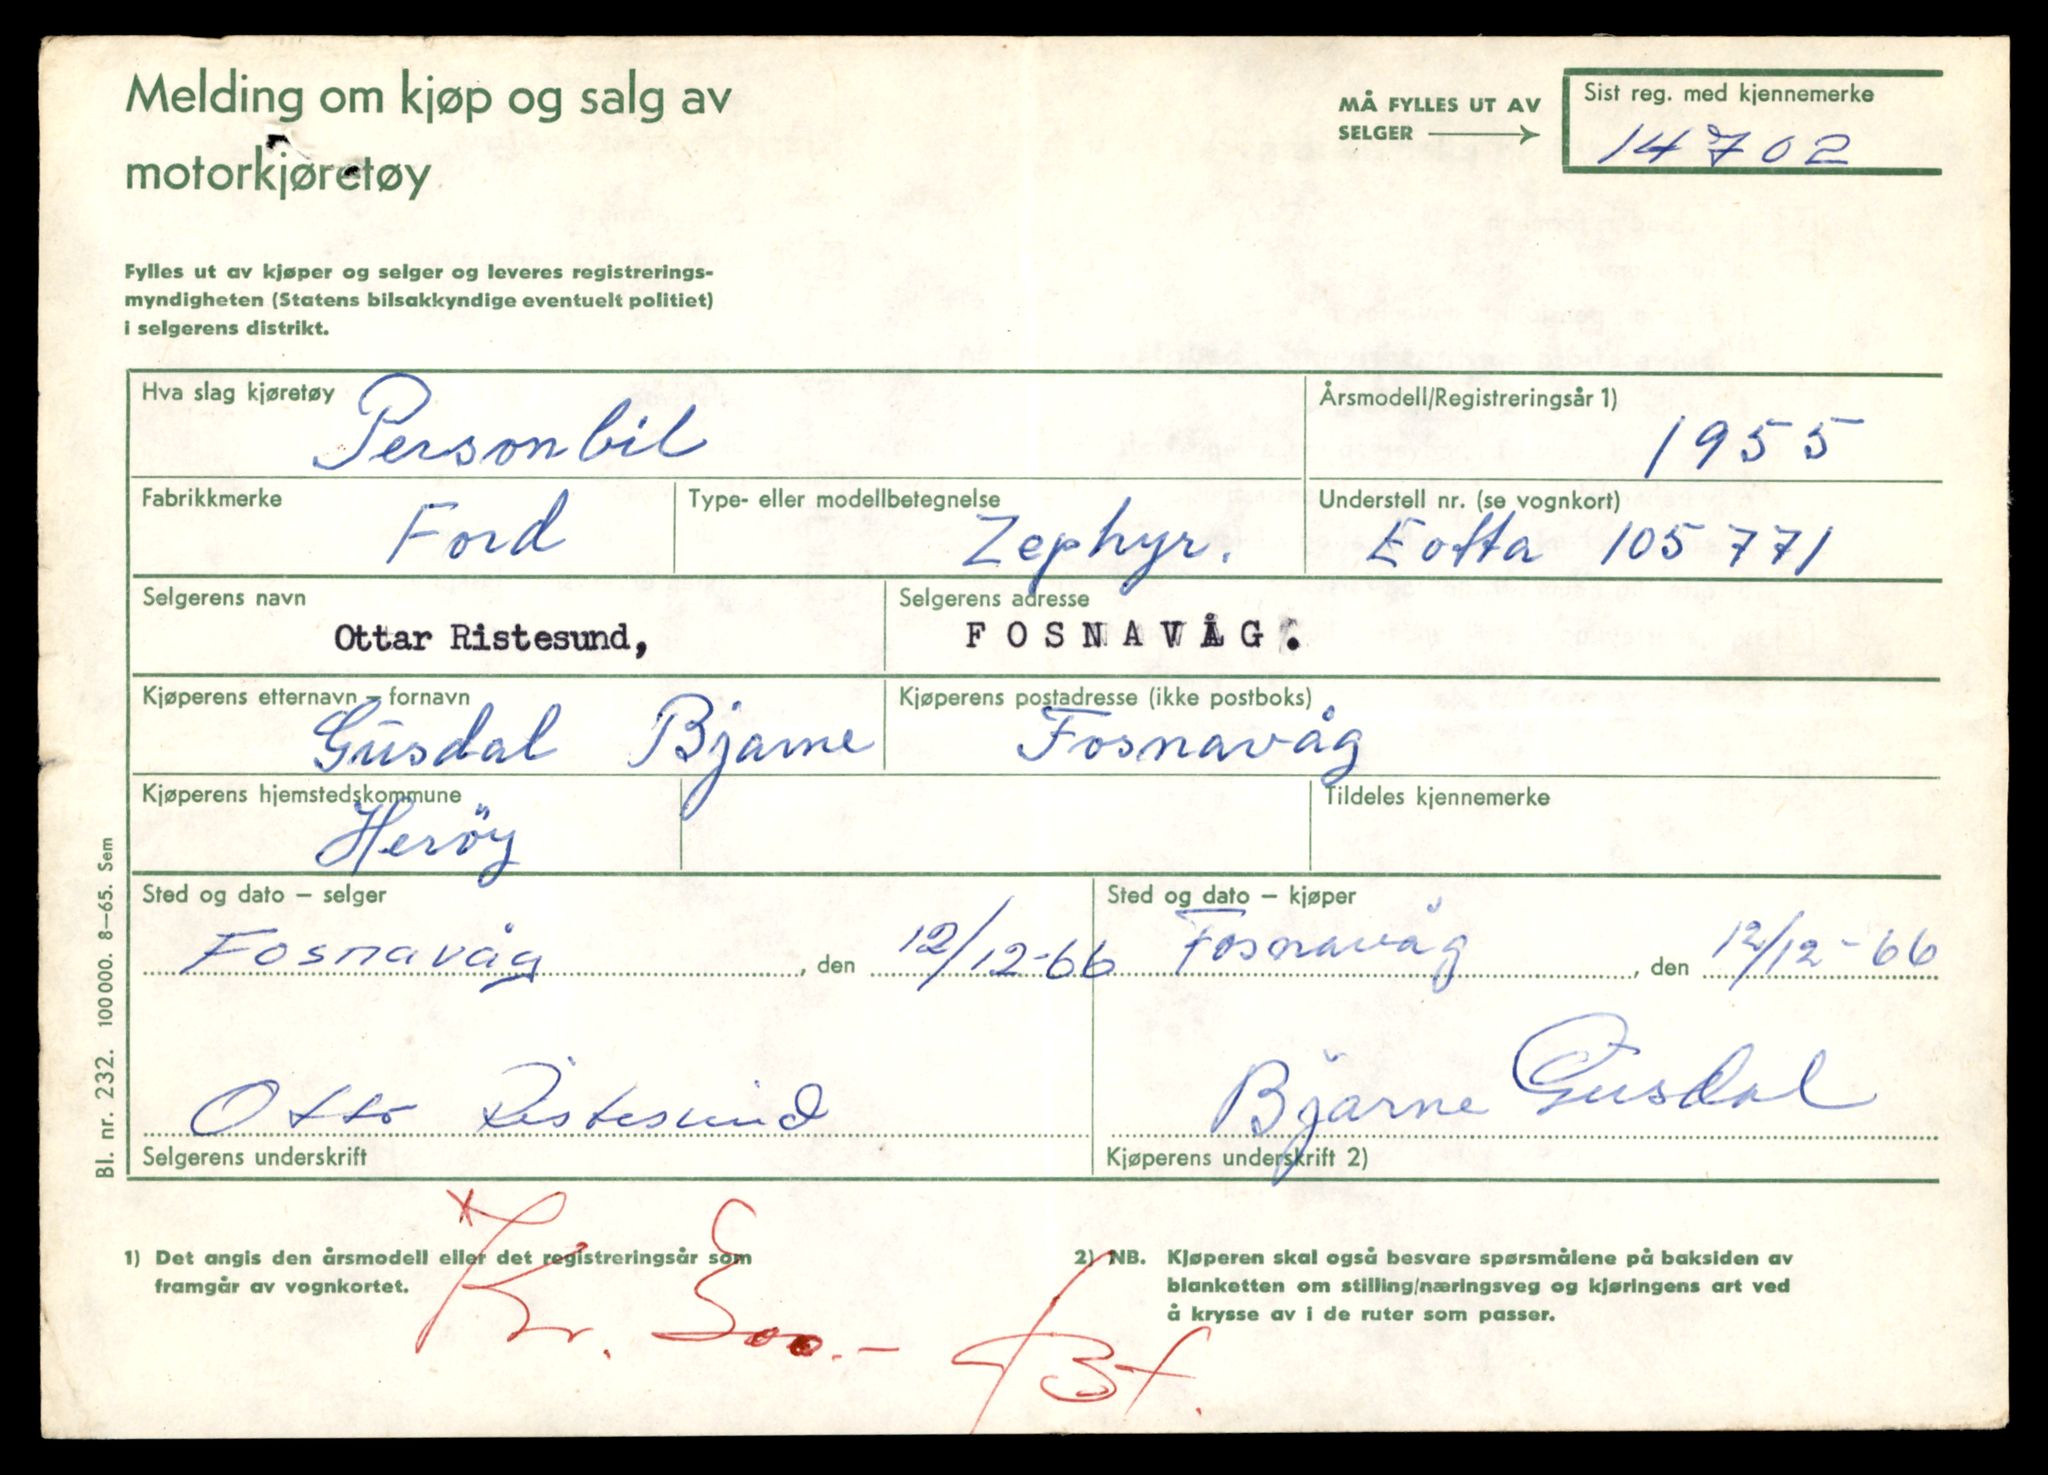 Melding om kjøp og salg av
motorkjøretøy
MÅ FYLLES UT AV
SELGER
Sist reg. med kjennemerke
14702
Fylles ut av kjøper og selger og leveres registrerings-
myndigheten (Statens bilsakkyndige eventuelt politiet)
i selgerens distrikt.
Hva slag kjøretøy
Personbil
Årsmodell/Registreringsår 1)
1955
Fabrikkmerke
Ford
Type- eller modellbetegnelse
Zephyr.
Understell nr. (se vognkort)
Eotta 105771
Selgerens navn
Ottar Ristesund,
Selgerens adresse
FOSNAVÅG.
Kjøperens etternavn – fornavn
Gusdal Bjarne
Kjøperens postadresse (ikke postboks)
Fosnavåg
Kjøperens hjemstedskommune
Heröy
Tildeles kjennemerke
Sted og dato – selger
Fosnavåg, den 12/12-66
Sted og dato – kjøper
Fosnavåg, den 12/12-66
Otto Ristesund
Selgerens underskrift
Bjarne Gusdal
Kjøperens underskrift 2)
Bl. nr. 232. 100 000. 8–65. Sem
1) Det angis den årsmodell eller det registreringsår som
framgår av vognkortet.
2) NB. Kjøperen skal også besvare spørsmålene på baksiden av
blanketten om stilling/næringsveg og kjøringens art ved
å krysse av i de ruter som passer.
Kr.